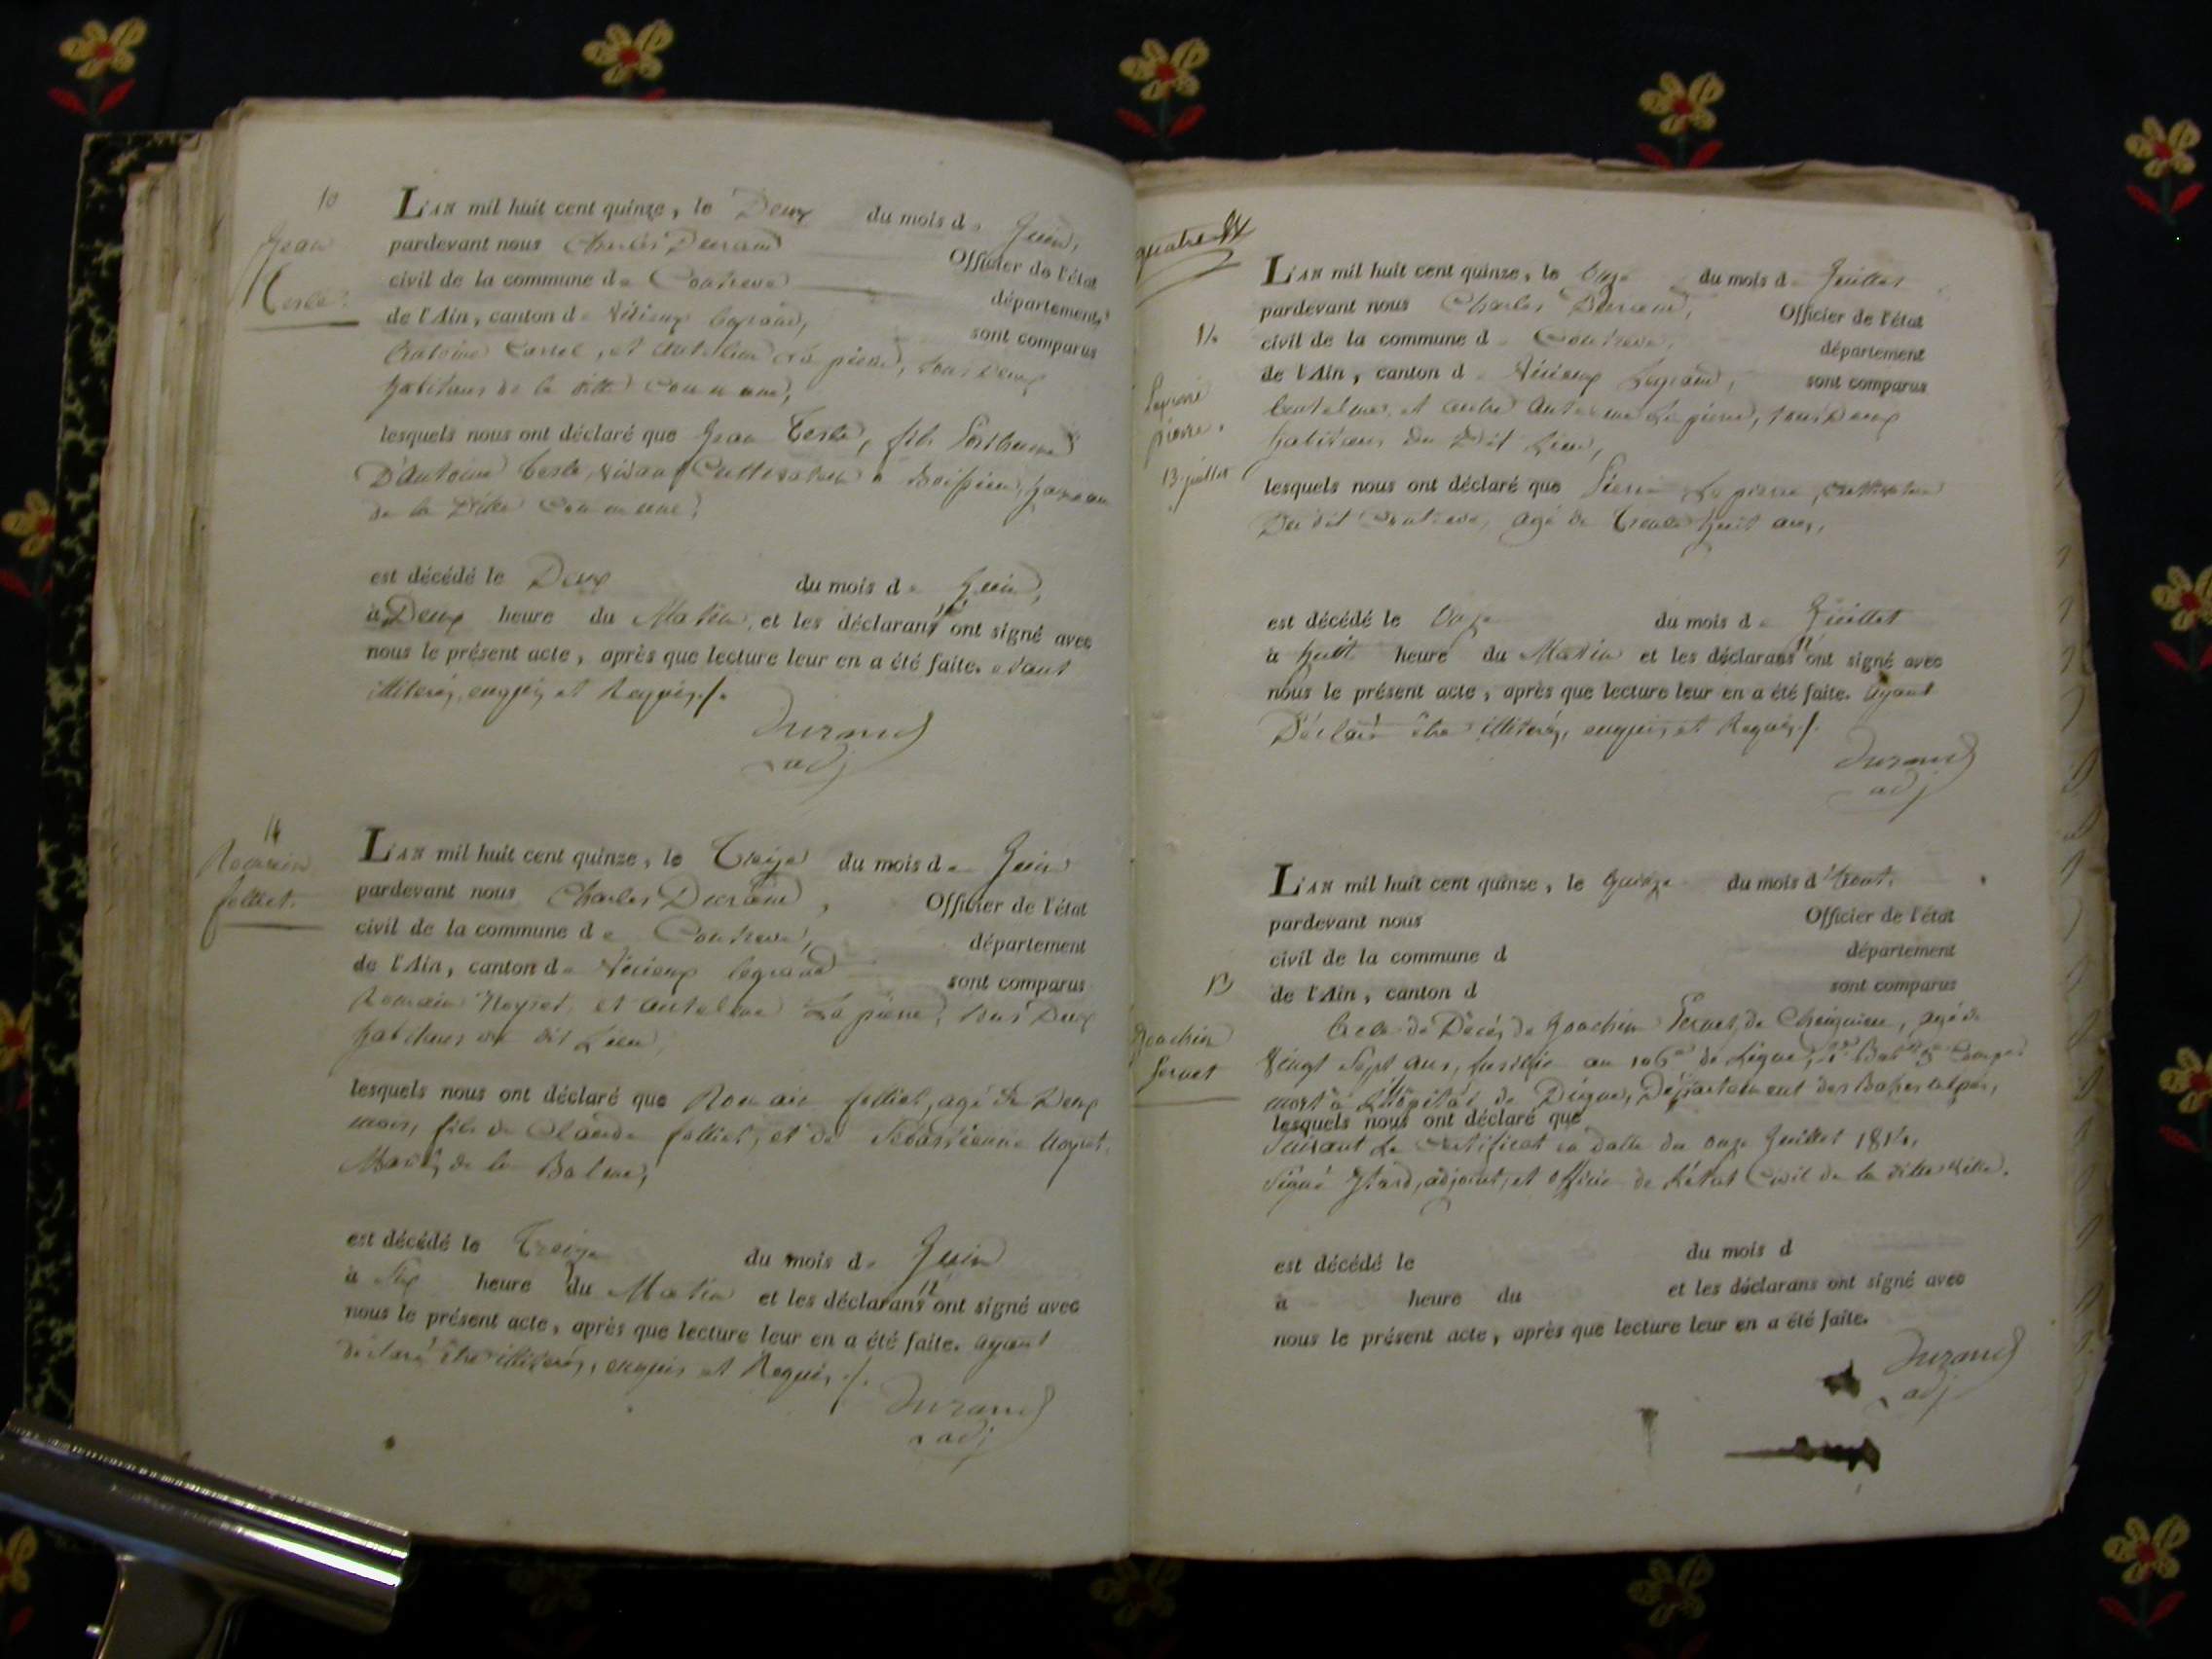 10
Jean
Terle
L'AN mil huit cent quinze, le Deux du mois de Juin,
pardevant nous Charles Durand Officier de l'état
civil de la commune de Contrevo département
de l'Ain, canton de Virieux legrand, sont comparus
Antoine Carrel, et Antelme Lapierre, tous Deux
habitans de la ditte Commune,
lesquels nous ont déclaré que Jean Terle, fils Posthume
D'Antoine Terle, vivant Cultivateur a hameau
de la Ditte Commune,
est décédé le Deux du mois de Juin,
à Deux heure du Matin, et les déclarans n' ont signé avec
nous le présent acte, après que lecture leur en a été faite. etant
illiterés, enquis et Requis./.
Durand
adj
11
Romain
felliet.
L'AN mil huit cent quinze, le Treize du mois de Juin
pardevant nous Charles Durand, Officier de l'état
civil de la commune de Contrevo, département
de l'Ain, canton de Virieux legrand sont comparus
Romain Noyret, et Antelme Lapierre, tous Deux
habitans du dit Lieu,
lesquels nous ont déclaré que Romain felliet, agé de Deux
mois, fils de Claude felliet, et de Sébastienne Noyret,
Mariés de la Balme,
est décédé le Treize du mois de Juin
à Six heure du Matin et les déclarans n' ont signé avec
nous le présent acte, après que lecture leur en a été faite. ayant
déclaré être illiterés, enquis et Requis ./.
Durand
adj
quatre
L'AN mil huit cent quinze, le Onze du mois de Juillet
pardevant nous Charles Durand, Officier de l'état
civil de la commune de Contrevo, département
de l'Ain, canton de Virieux Legrand, sont comparus
Antelme, et autre Antelme Lapierre, tous Deux
habitans du Dit Lieu,
Lapierre
pierre.
13 juillet
lesquels nous ont déclaré que Pierre Lapierre, cultivateur
Du dit Contrevo, agé de Trente huit ans,
est décédé le Onze du mois de Juillet
à huit heure du Matin et les déclarans n' ont signé avec
nous le présent acte, après que lecture leur en a été faite. ayant
Déclaré être illiterés, enquis et Requis./.
Durand
adj
L'AN mil huit cent quinze, le quinze du mois d'Aout.
pardevant nous Officier de l'état
civil de la commune d département
13
de l'Ain, canton d sont comparus
Joachin
Servet
Acte de Décès de Joachin Servet, de Cheignieu, agé de
Vingt Sept ans, fusilier au 106e de Ligne,
mort à L'hopital de Digne, Département des Basses alpes,
lesquels nous ont déclaré que
Suivant Le Certificat en datte du onze Juillet 1814,
Signé Itard, adjoint, et officier de L'état Civil de la ditte Ville.
est décédé le du mois d
à heure du et les déclarans ont signé avec
nous le présent acte, après que lecture leur en a été faite.
Durand
adj